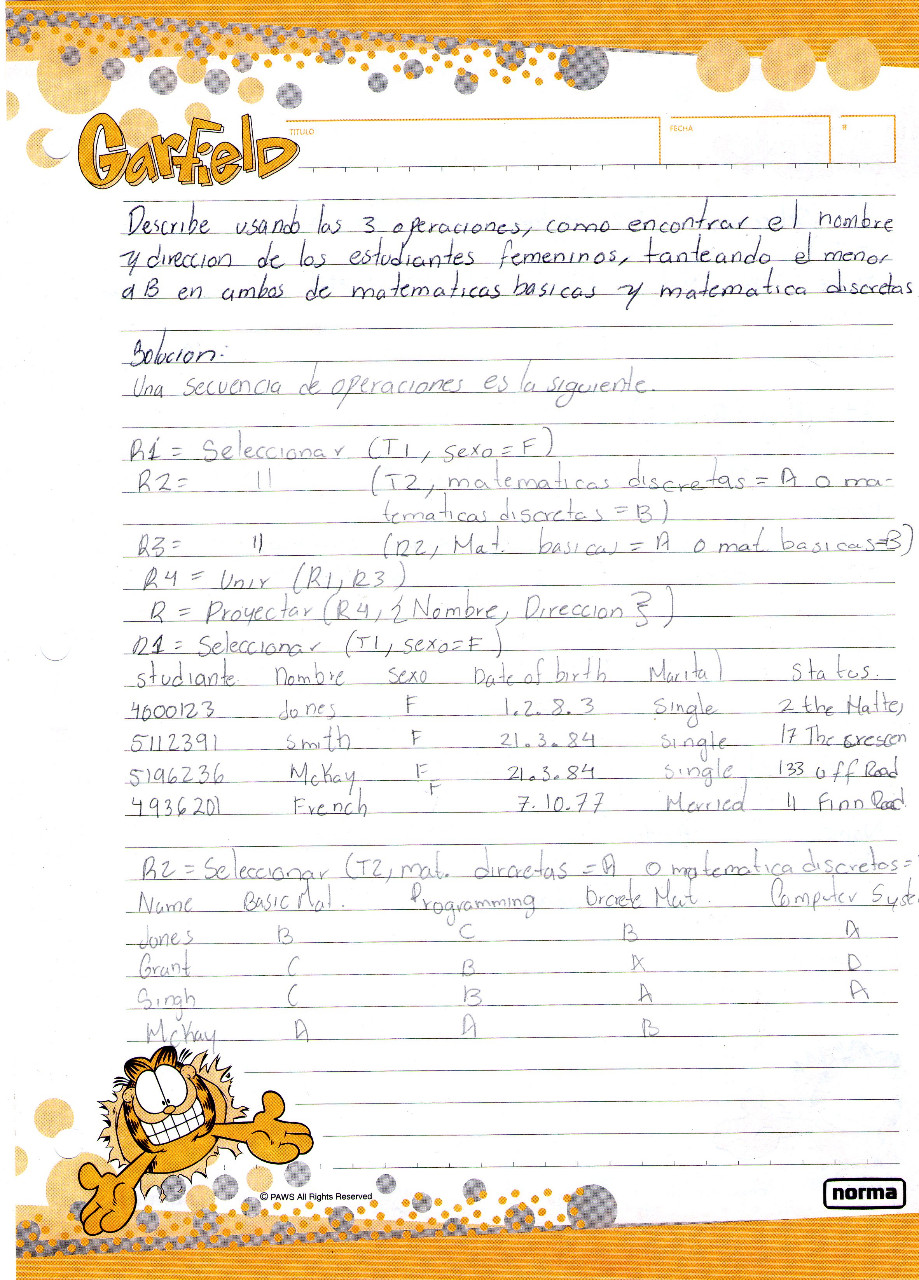 Garfield
TITULO
FECHA
#
Describe usando las 3 operaciones, como encontrar el nombre
y direccion de los estudiantes femeninos, tanteando el menor
a B en ambos de matematicas basicas y matematica discretas
Solucion:
Una secuencia de operaciones es la siguiente.
R1 = Seleccionar (T1, sexo = F)
R2 = " (T2, matematicas discretas = A o ma-
tematicas discretas = B)
R3 = " (R2, Mat. basicas = A o mat basicas=B)
R4 = Unir (R1, R3)
R = Proyectar (R4, {Nombre, Direccion})
R1 = Seleccionar (T1, sexo=F)
studiante Nombre Sexo Date of birth Marital Status.
4000123 Jones F 1.2.8.3 Single 2 the Malte,
5112391 Smith F 21.3.84 single 17 The cresсen
5196236 McKay F 21.3.84 single 133 uff Road
4936201 French F 7.10.77 Merried 11 Finn Road
R2 = Seleccionar (T2, mat. dircretas = A o matematica discretos =
Name Basic Mat. Programming Drcrete Mat. Computer Syste
Jones B C B A
Grant C B A D
Singh C B A A
McKay A A B
© PAWS All Rights Reserved
norma